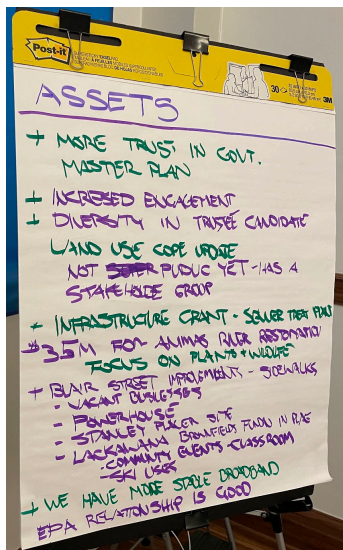 Post-it
30
3M
ASSETS
+ MORE TRUST IN GOVT.
MASTER PLAN
+ INCRESED ENGAGEMENT
+ DIVERSITY IN TRUSTEE CANDIDATE
LAND USE CODE UPDATE
NOT PUBLIC YET - HAS A
STAKEHOLDE GROUP
+ INFRASTRUCTURE GRANT - SEWER TREAT PLANT
$3.5M FOR ANIMAS RIVER RESTORATION
FOCUS ON PLANTS + WILDLIFE
+ BLAIR STREET IMPROVEMENTS - SIDEWALKS
- VACANT BUSINESSES
- POWERHOUSE
- STANLEY PLACER SITE
- LACKAWANA BROWNFIELDS FUNDN IN PLACE
- COMMUNITY EVENTS - CLASSROOM
- SKI USES
+ WE HAVE MORE STABLE BROADBAND
EPA RELATIONSHIP IS GOOD